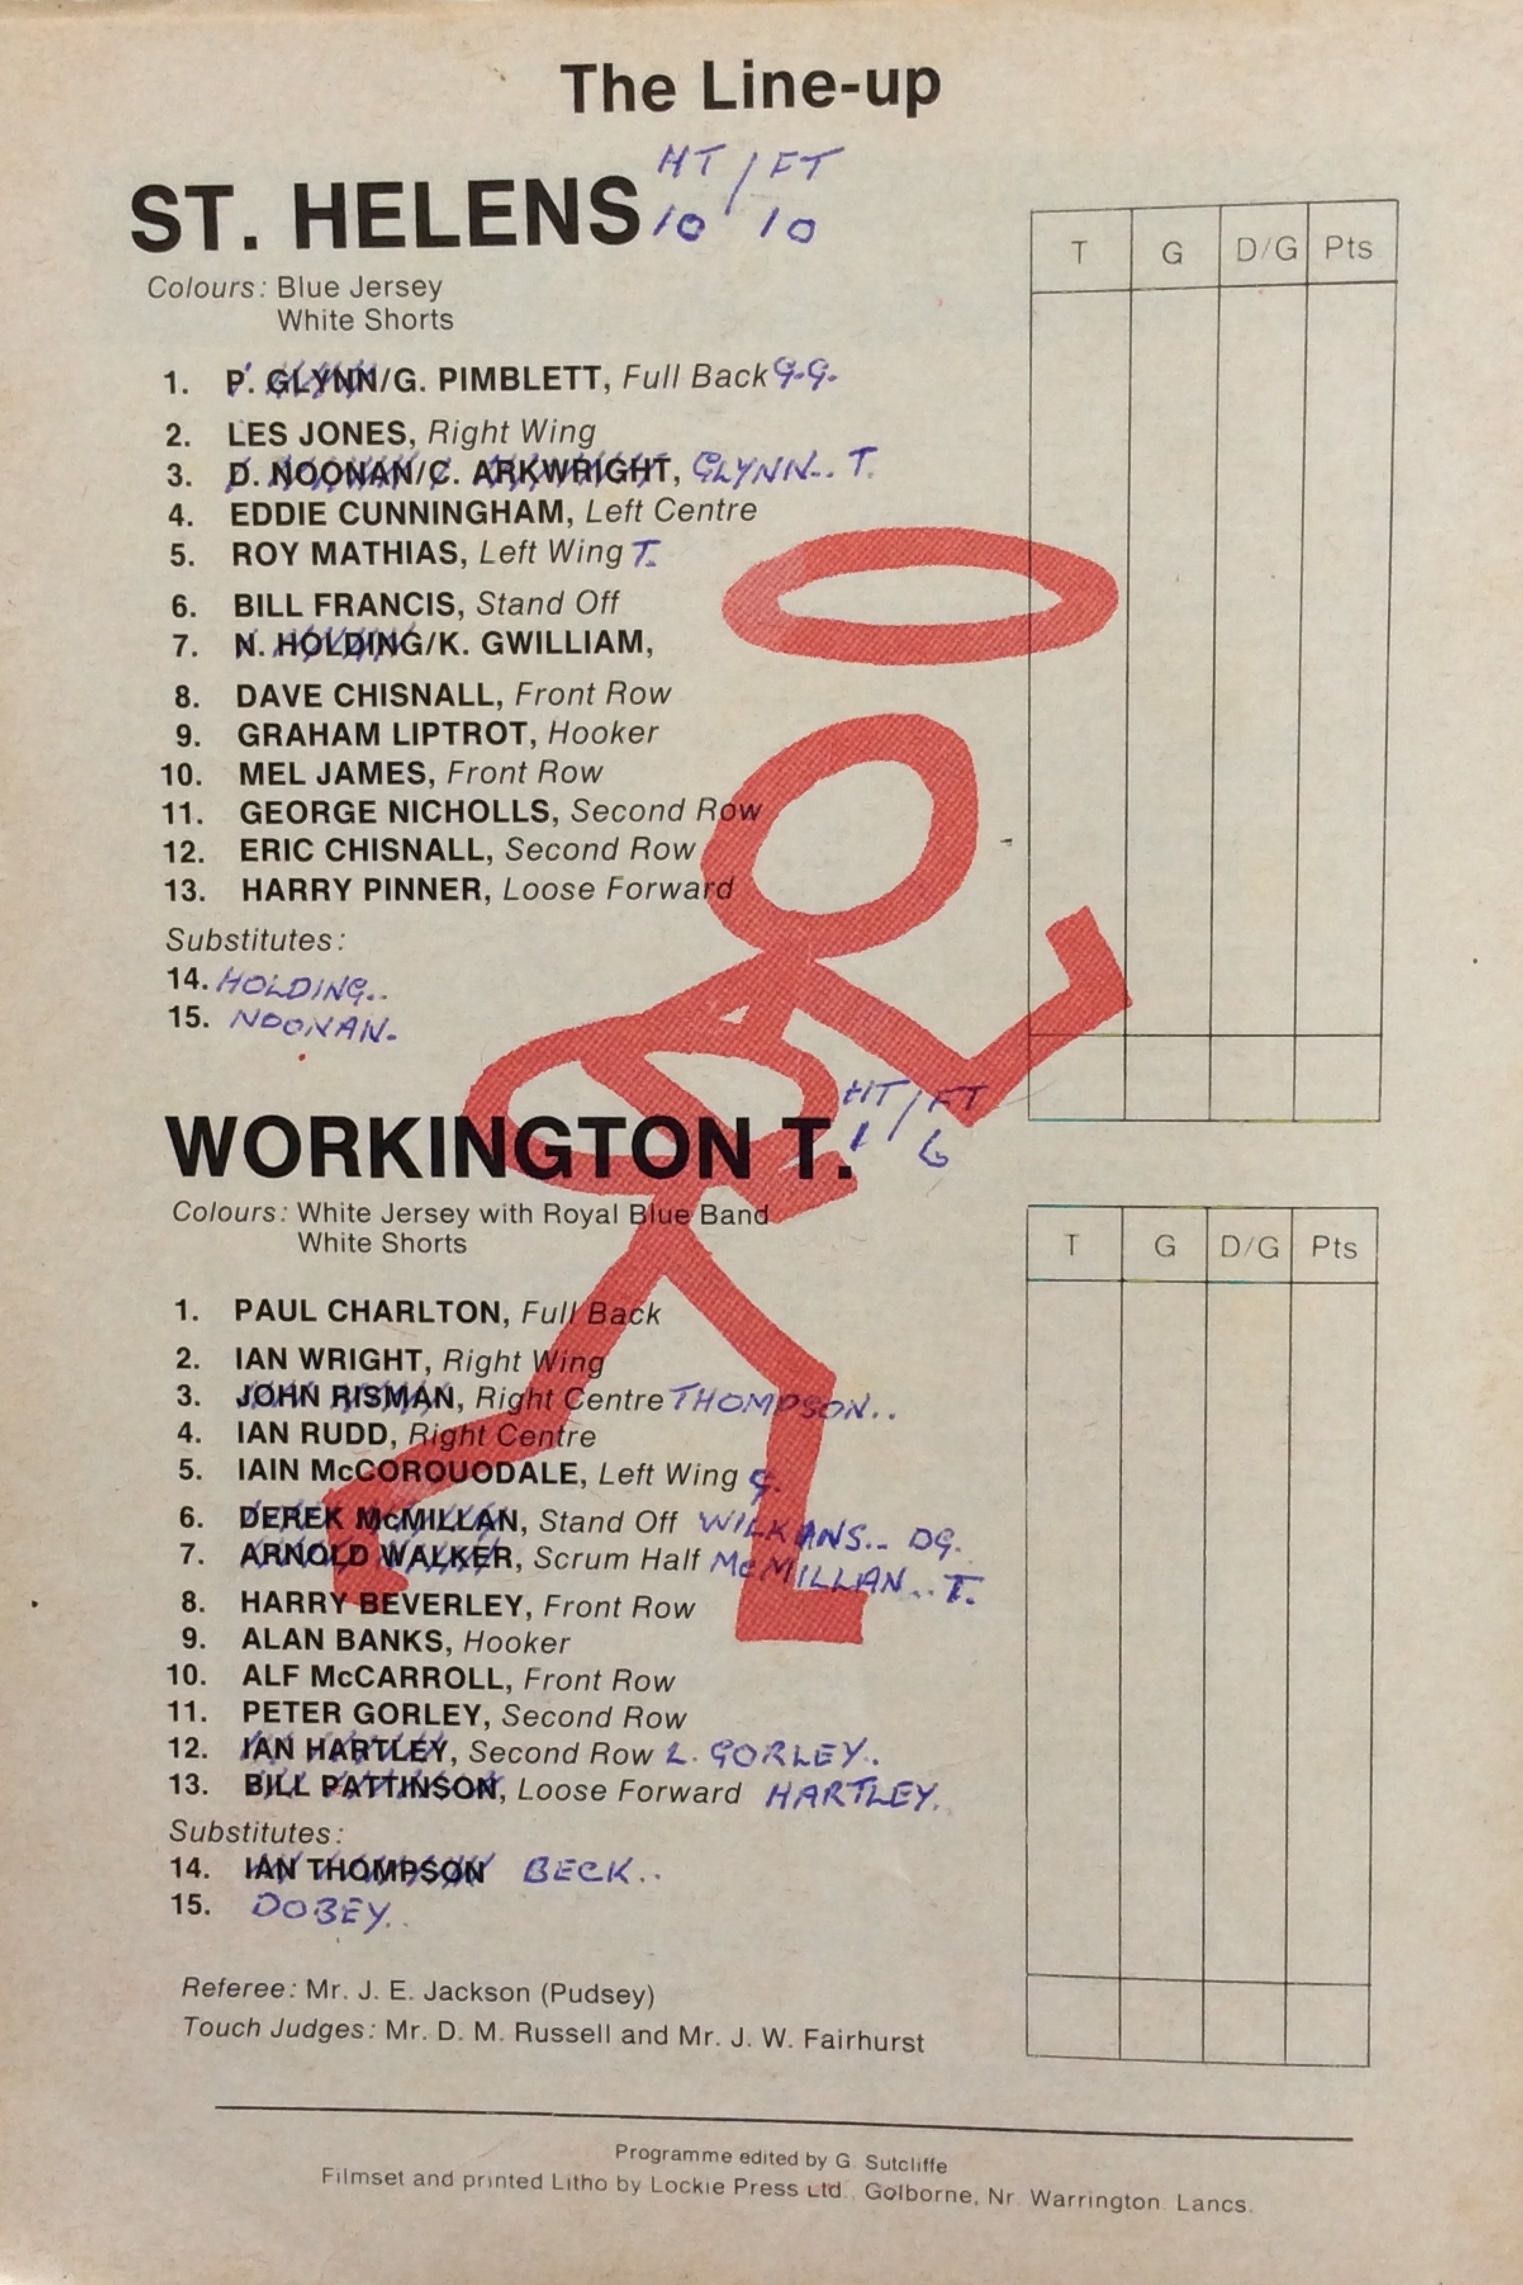 The Line-up
HT / FT
ST. HELENS 10 10
T G D/G Pts
Colours: Blue Jersey
White Shorts
1. P. GLYNN/G. PIMBLETT, Full Back G.G.
2. LES JONES, Right Wing
3. D. NOONAN/C. ARKWRIGHT, GLYNN.. T.
4. EDDIE CUNNINGHAM, Left Centre
5. ROY MATHIAS, Left Wing T.
6. BILL FRANCIS, Stand Off
7. N. HOLDING/K. GWILLIAM,
8. DAVE CHISNALL, Front Row
9. GRAHAM LIPTROT, Hooker
10. MEL JAMES, Front Row
11. GEORGE NICHOLLS, Second Row
12. ERIC CHISNALL, Second Row
13. HARRY PINNER, Loose Forward
Substitutes:
14. HOLDING..
15. NOONAN.
HT / FT
WORKINGTON T. 1 6
Colours: White Jersey with Royal Blue Band
White Shorts
T G D/G Pts
1. PAUL CHARLTON, Full Back
2. IAN WRIGHT, Right Wing
3. JOHN RISMAN, Right Centre THOMPSON..
4. IAN RUDD, Right Centre
5. IAIN McCOROUODALE, Left Wing G.
6. DEREK McMILLAN, Stand Off WILKANS.. DG.
7. ARNOLD WALKER, Scrum Half McMILLAN.. T.
8. HARRY BEVERLEY, Front Row
9. ALAN BANKS, Hooker
10. ALF McCARROLL, Front Row
11. PETER GORLEY, Second Row
12. IAN HARTLEY, Second Row L. GORLEY..
13. BILL PATTINSON, Loose Forward HARTLEY.
Substitutes:
14. IAN THOMPSON BECK..
15. DOBEY..
Referee: Mr. J. E. Jackson (Pudsey)
Touch Judges: Mr. D. M. Russell and Mr. J. W. Fairhurst
Programme edited by G. Sutcliffe
Filmset and printed Litho by Lockie Press Ltd., Golborne, Nr. Warrington. Lancs.